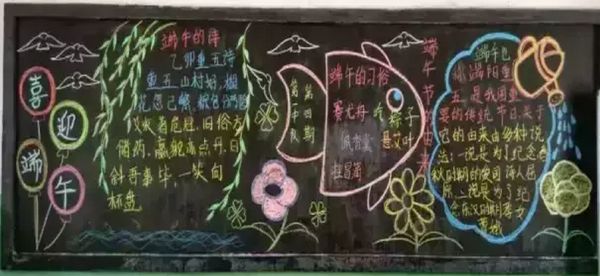 喜
迎
端
午
端午的诗
乙卯重五诗
重五山村好,榴
花忽已繁。粽包分两髻,
艾束著危冠。旧俗方
储药,羸躯亦点丹。日
斜吾事毕,一笑向
杯盘
第
期
端午的习俗
赛龙舟 吃粽子
佩香囊 悬艾叶
挂菖蒲
端
午
节
的
由
来
端午也
称端阳重
五,是我国重
要的传统节日,关于
它的由来由多种说
法:一说是为了纪念春
秋时期的爱国诗人屈
原、二说是为了纪
念东汉的